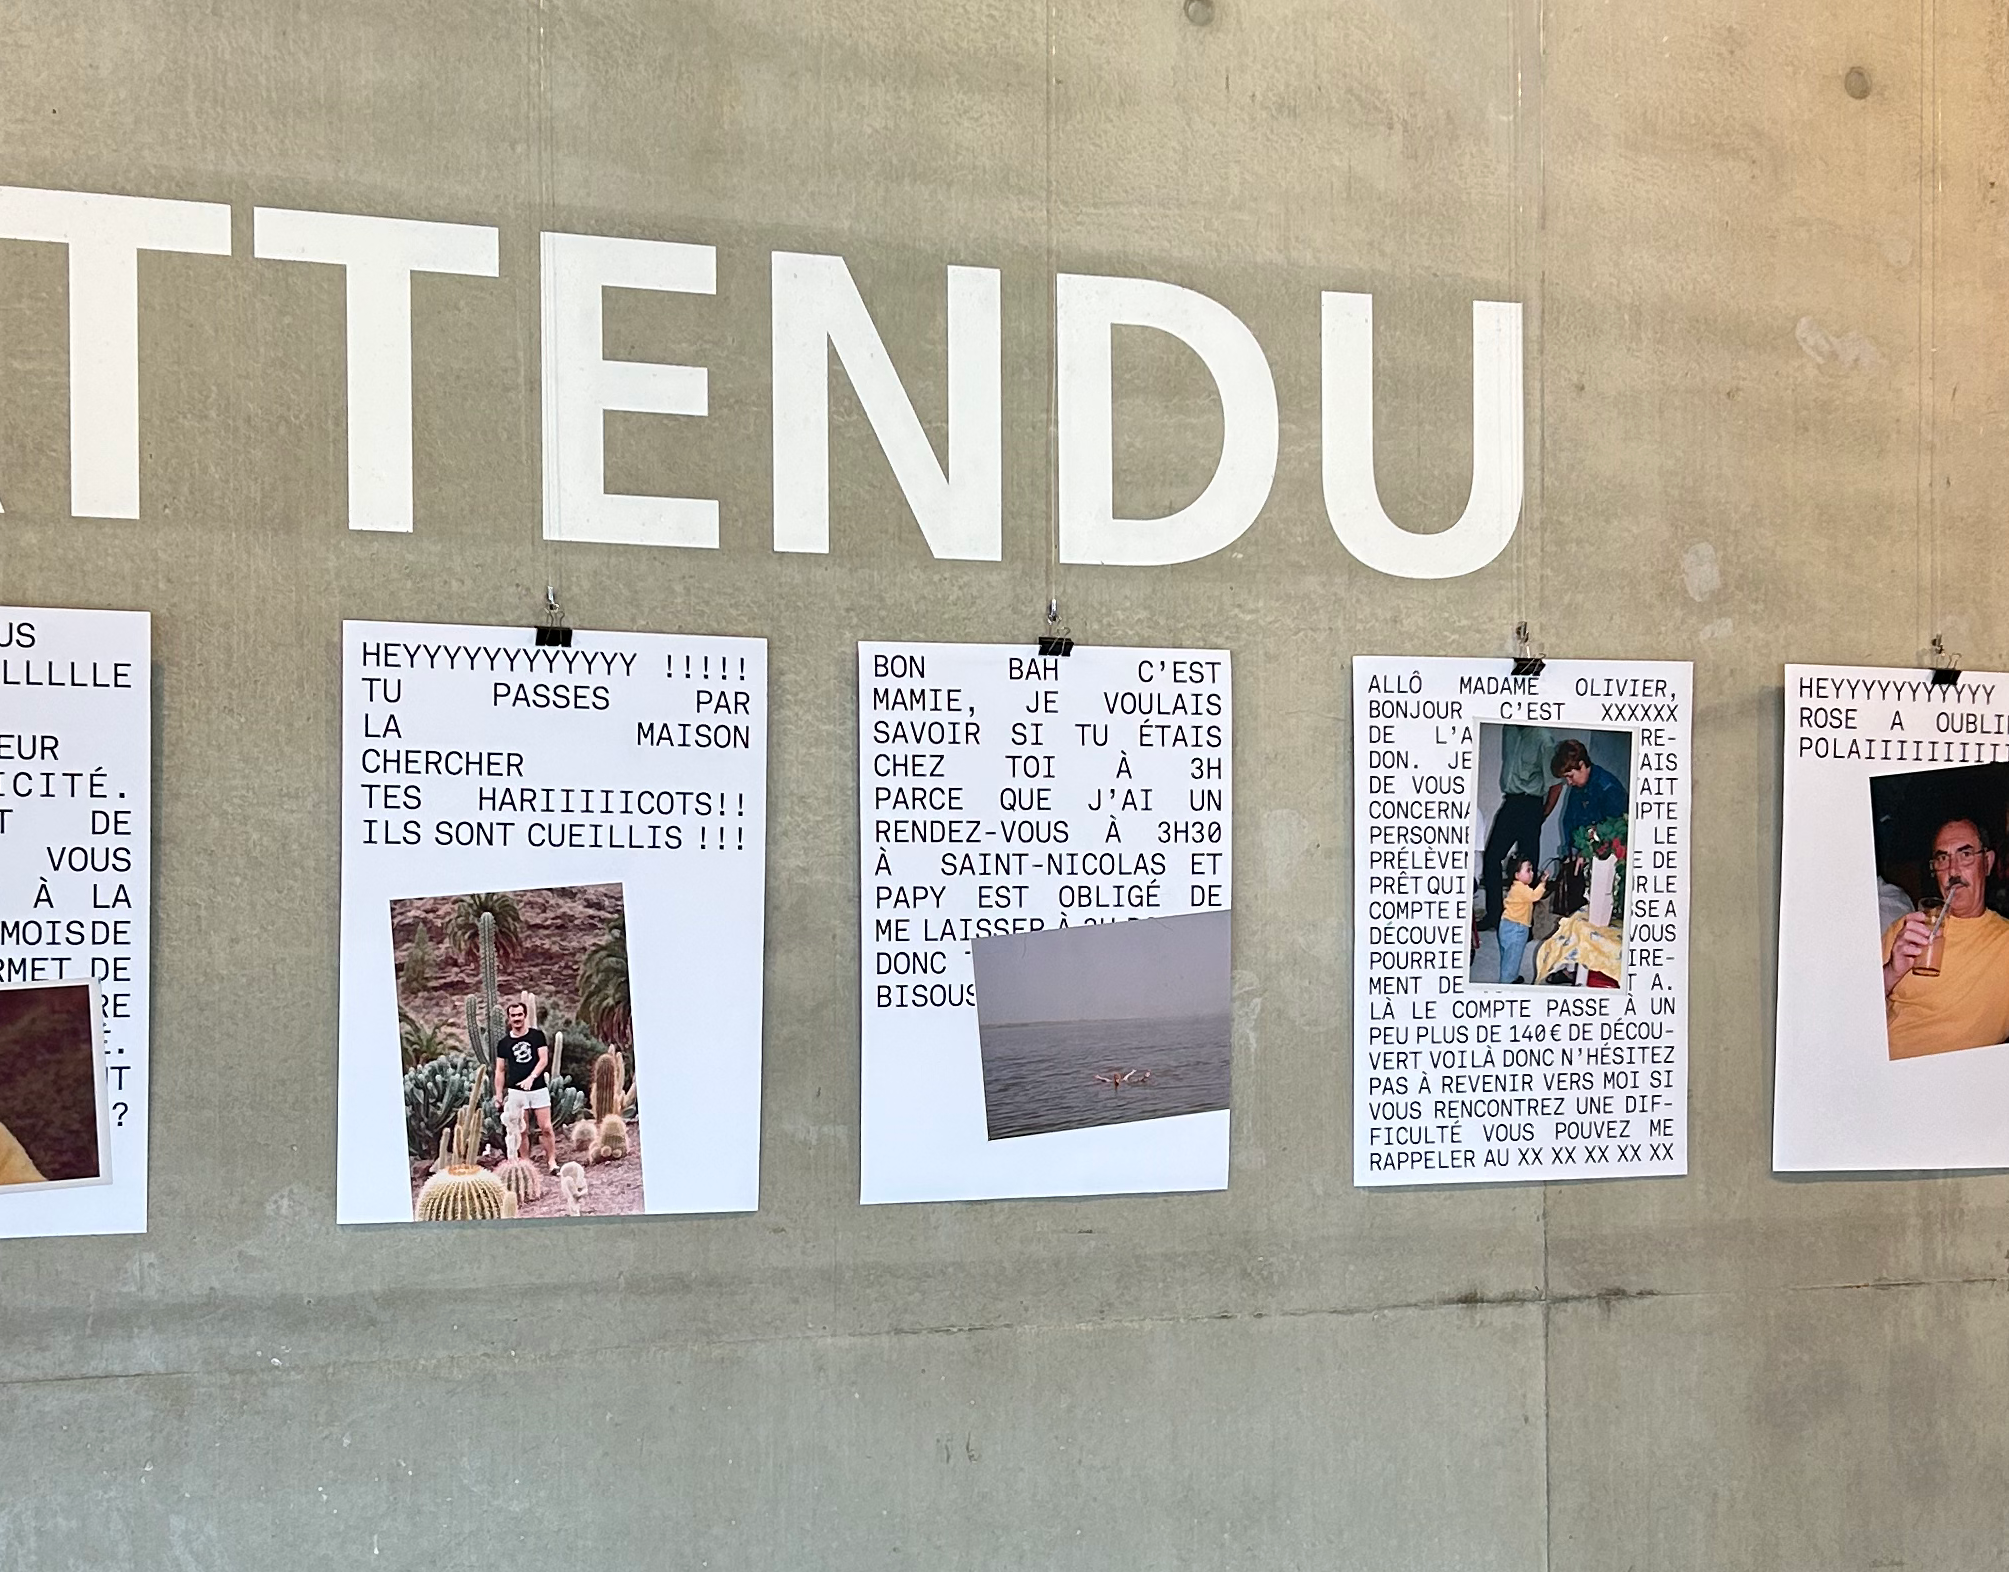 ATTENDU
US
LLLLLLE
EUR
ICITÉ.
T DE
VOUS
À LA
MOIS DE
RMET DE
RE
É.
NT
?
HEYYYYYYYYYYYY !!!!!
TU PASSES PAR
LA MAISON
CHERCHER
TES HARIIIIICOTS!!
ILS SONT CUEILLIS !!!
BON BAH C'EST
MAMIE, JE VOULAIS
SAVOIR SI TU ÉTAIS
CHEZ TOI À 3H
PARCE QUE J'AI UN
RENDEZ-VOUS À 3H30
À SAINT-NICOLAS ET
PAPY EST OBLIGÉ DE
ME LAISSER À
DONC
BISOUS
ALLÔ MADAME OLIVIER,
BONJOUR C'EST XXXXXX
DE L'A RE-
DON. JE AIS
DE VOUS FAIT
CONCERNA MPTE
PERSONNE LE
PRÉLÈVEM E DE
PRÊT QUI UR LE
COMPTE E SSE A
DÉCOUVE VOUS
POURRIE IRE-
MENT DE T A.
LÀ LE COMPTE PASSE À UN
PEU PLUS DE 140€ DE DÉCOU-
VERT VOILÀ DONC N'HÉSITEZ
PAS À REVENIR VERS MOI SI
VOUS RENCONTREZ UNE DIF-
FICULTÉ VOUS POUVEZ ME
RAPPELER AU XX XX XX XX XX
HEYYYYYYYYYYY
ROSE A OUBLI
POLAIIIIIIIIII